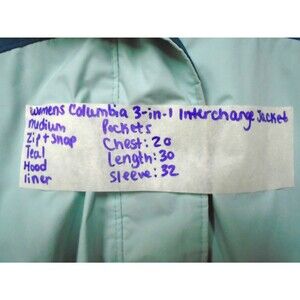 womens Columbia 3-in-1 Interchange Jacket
medium Pockets
Zip + snap Chest: 20
Teal Length: 30
Hood Sleeve: 32
liner